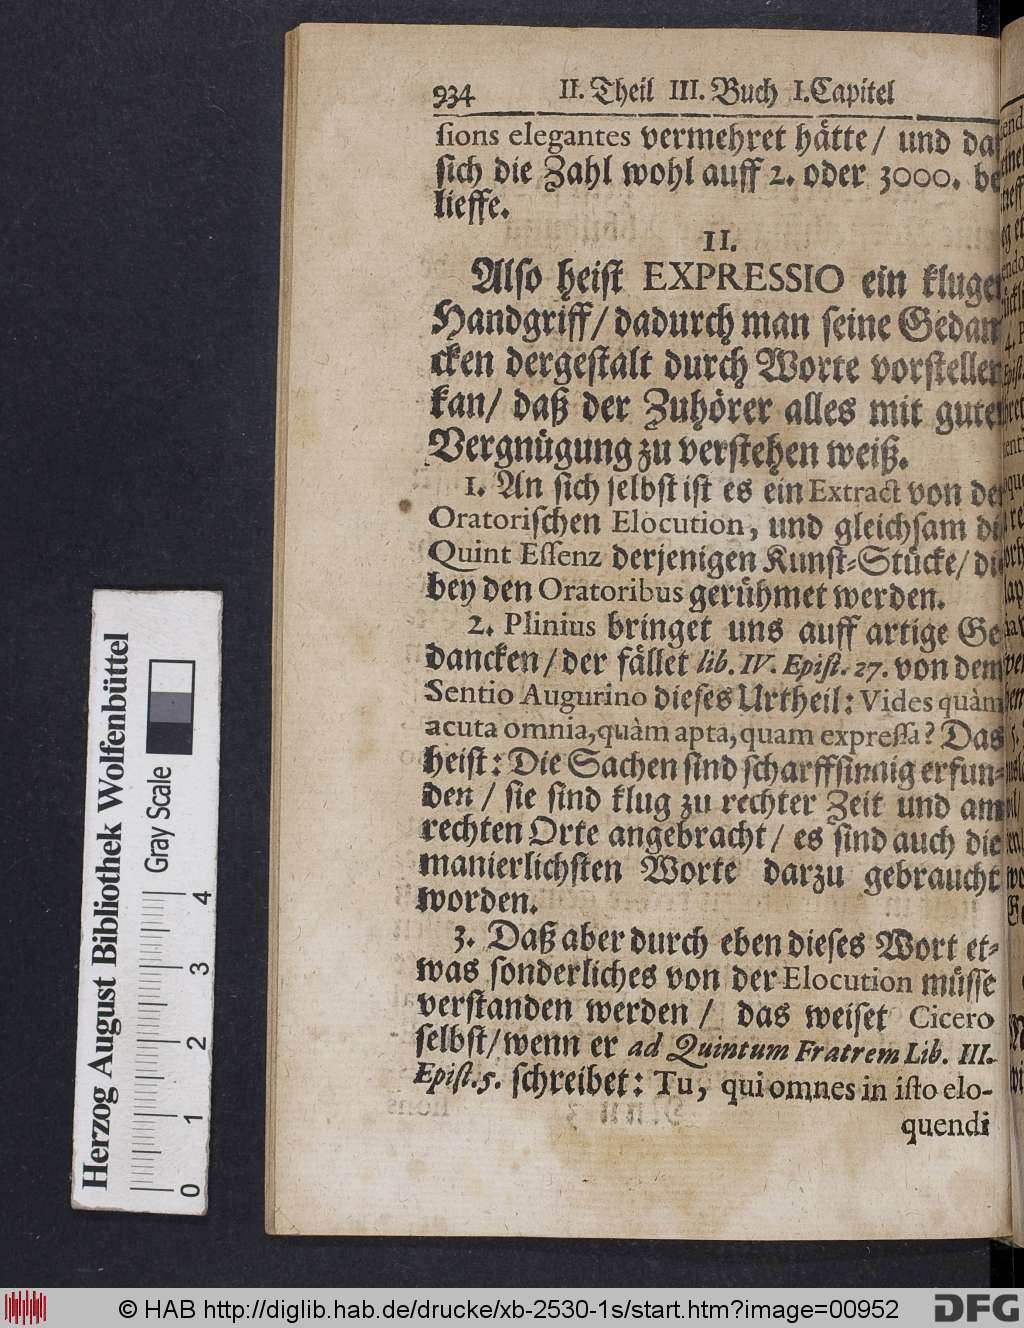 934 II. Theil III. Buch I. Capitel
sions elegantes vermehret hätte/ und daß
sich die Zahl wohl auff 2. oder 3000. be
lieffe.
II.
Also heist EXPRESSIO ein kluger
Handgriff/ dadurch man seine Gedan
cken dergestalt durch Worte vorstellen
kan/ daß der Zuhörer alles mit guter
Vergnügung zu verstehen weiß.
1. An sich selbst ist es ein Extract von der
Oratorischen Elocution, und gleichsam di
Quint Essenz derjenigen Kunst-Stücke/ di
bey den Oratoribus gerühmet werden.
2. Plinius bringet uns auff artige Ge
dancken/ der fället lib. IV. Epist. 27. von dem
Sentio Augurino dieses Urtheil: Vides quàm
acuta omnia, quàm apta, quam expressa? Das
heist: Die Sachen sind scharffsinnig erfun-
den/ sie sind klug zu rechter Zeit und am
rechten Orte angebracht/ es sind auch die
manierlichsten Worte darzu gebraucht
worden.
3. Daß aber durch eben dieses Wort et-
was sonderliches von der Elocution müsse
verstanden werden/ das weiset Cicero
selbst/ wenn er ad Quintum Fratrem Lib. III.
Epist. 5. schreibet: Tu, qui omnes in isto elo-
quendi
Herzog August Bibliothek Wolfenbüttel
Gray Scale
0 1 2 3 4
© HAB http://diglib.hab.de/drucke/xb-2530-1s/start.htm?image=00952
DFG